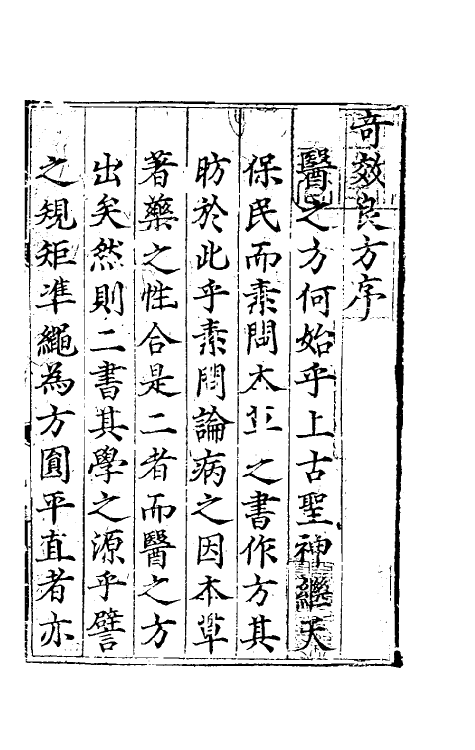 奇效良方序
醫之方何始乎上古聖神繼天
保民而素問本草之書作方其
昉於此乎素問論病之因本草
著藥之性合是二者而醫之方
出矣然則二書其學之源乎譬
之規矩準繩為方圓平直者亦